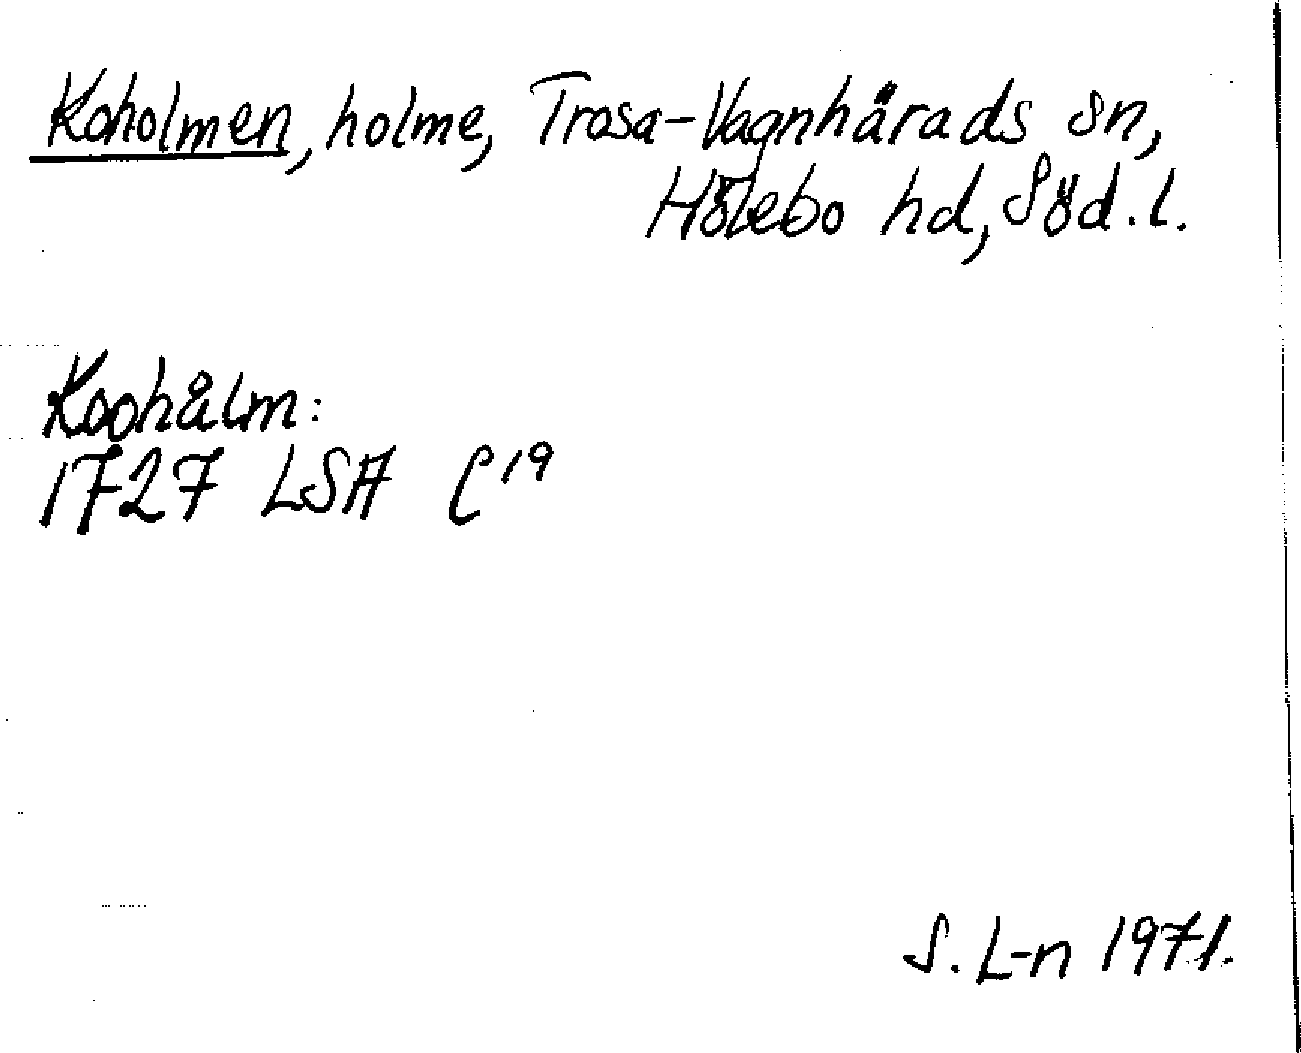 Koholmen, holme, Trosa-Vagnhärads sn,
Hölebo hd, Söd. l.
Koohålm:
1727 LSA C19
S. L-n 1971.